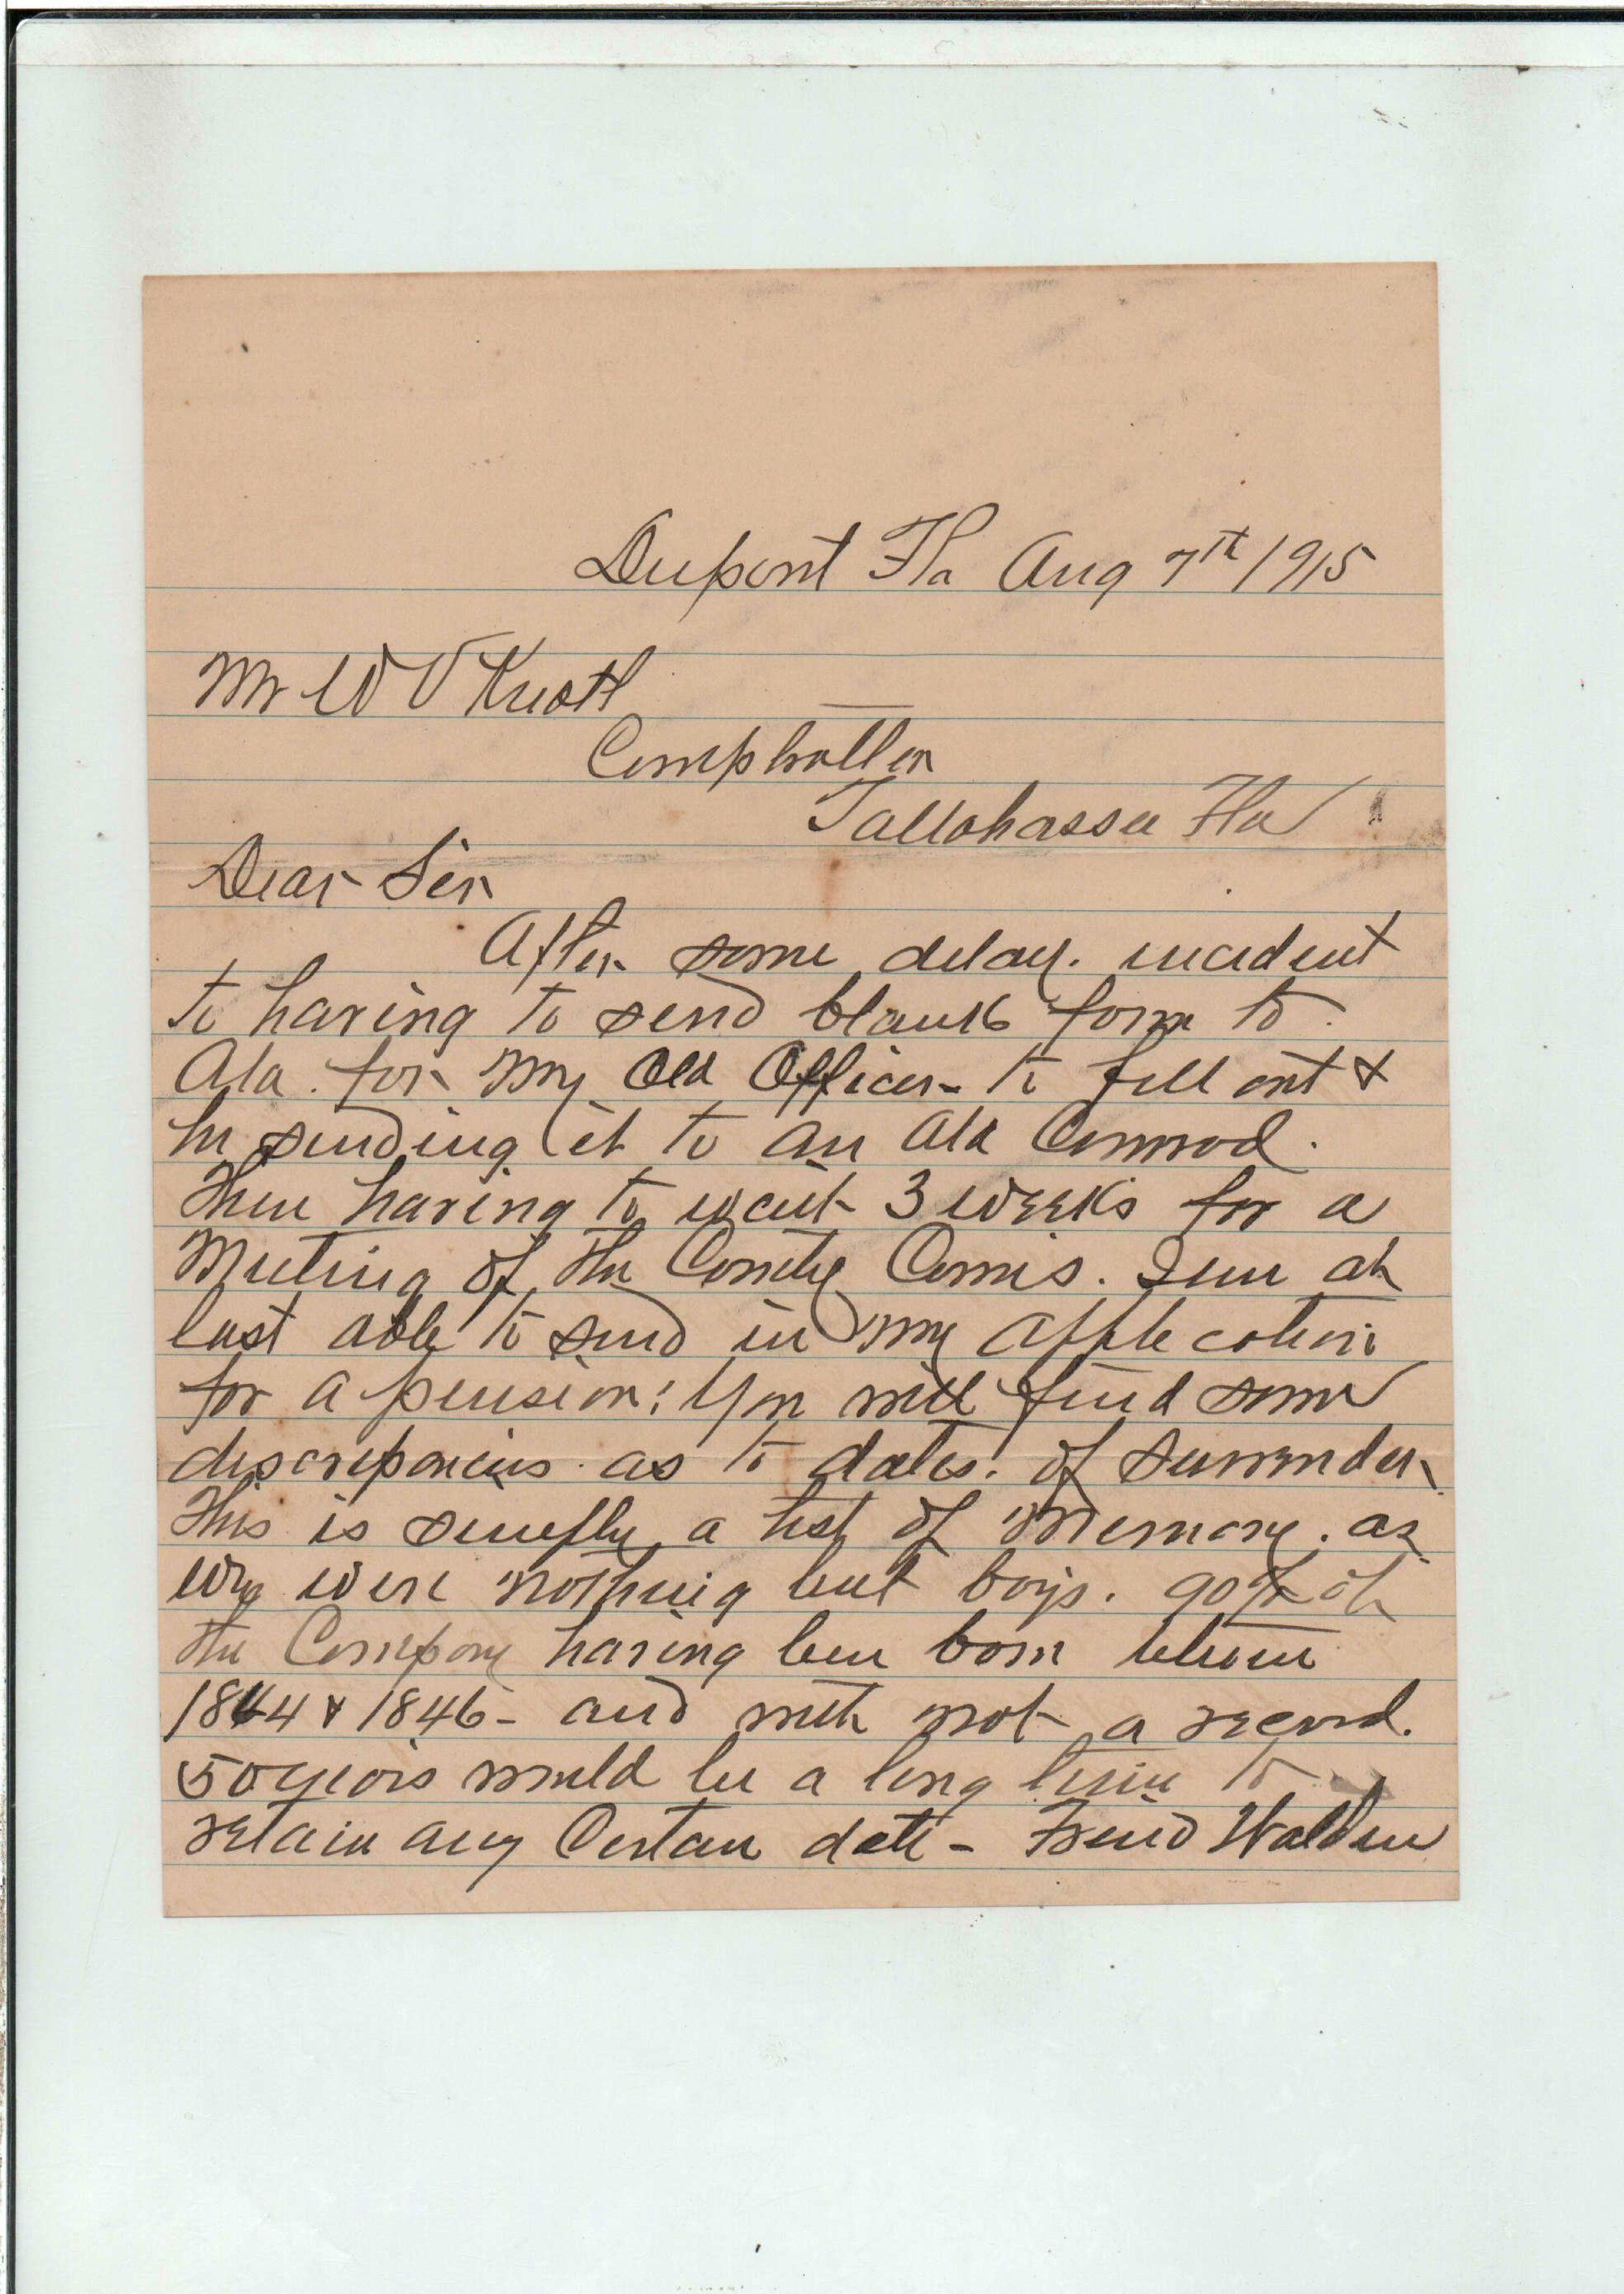 Dupont Fla Aug 7th 1915
Mr W V Knott
Comptroller
Tallahassee Fla
Dear Sir
After some delay. incident
to having to send blank form to
Ala. for my Old Officer to fill out &
he sending it to an Old Comrod.
Then having to wait 3 weeks for a
Meeting of the County Comis. I am at
last able to send in my application
for a pension: You will find some
discrepancies as to dates. of surrender
This is simply a test of Memory. as
we were nothing but boys. 90% of
the Company having been born between
1844 & 1846 - and with not a record.
50 years would be a long time to
retain any Certain date - Friend Walden